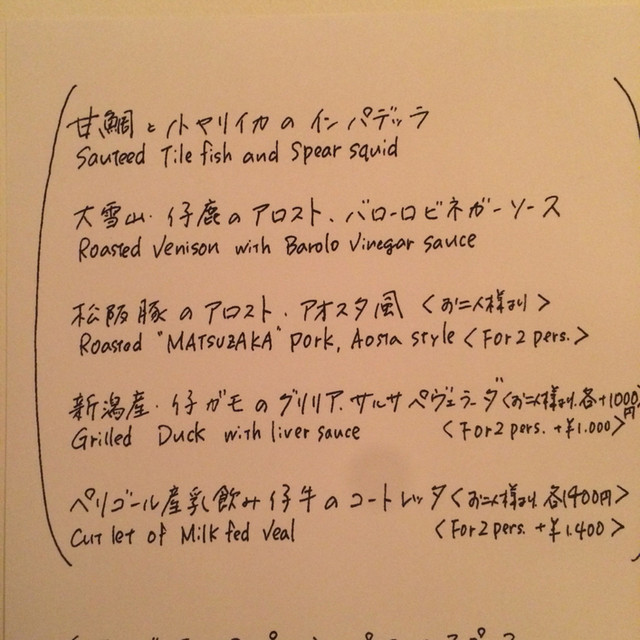 甘鯛と小ヤリイカのインパデッラ
Sauteed Tile fish and Spear squid
大雪山・仔鹿のアロスト、バローロビネガーソース
Roasted Venison with Barolo Vinegar sauce
松阪豚のアロスト・アオスタ風 <お二人様より>
Roasted "MATSUZAKA" pork, Aosta style <For 2 pers.>
新潟産・仔ガモのグリリア、サルサペヴェラーダ<お二人様より、各+1000円>
Grilled Duck with liver sauce <For 2 pers. +¥1.000>
ペリゴール産乳飲み仔牛のコートレッタ<お二人様より 各1400円>
Cutlet of Milk fed Veal <For 2 pers. +¥1.400>